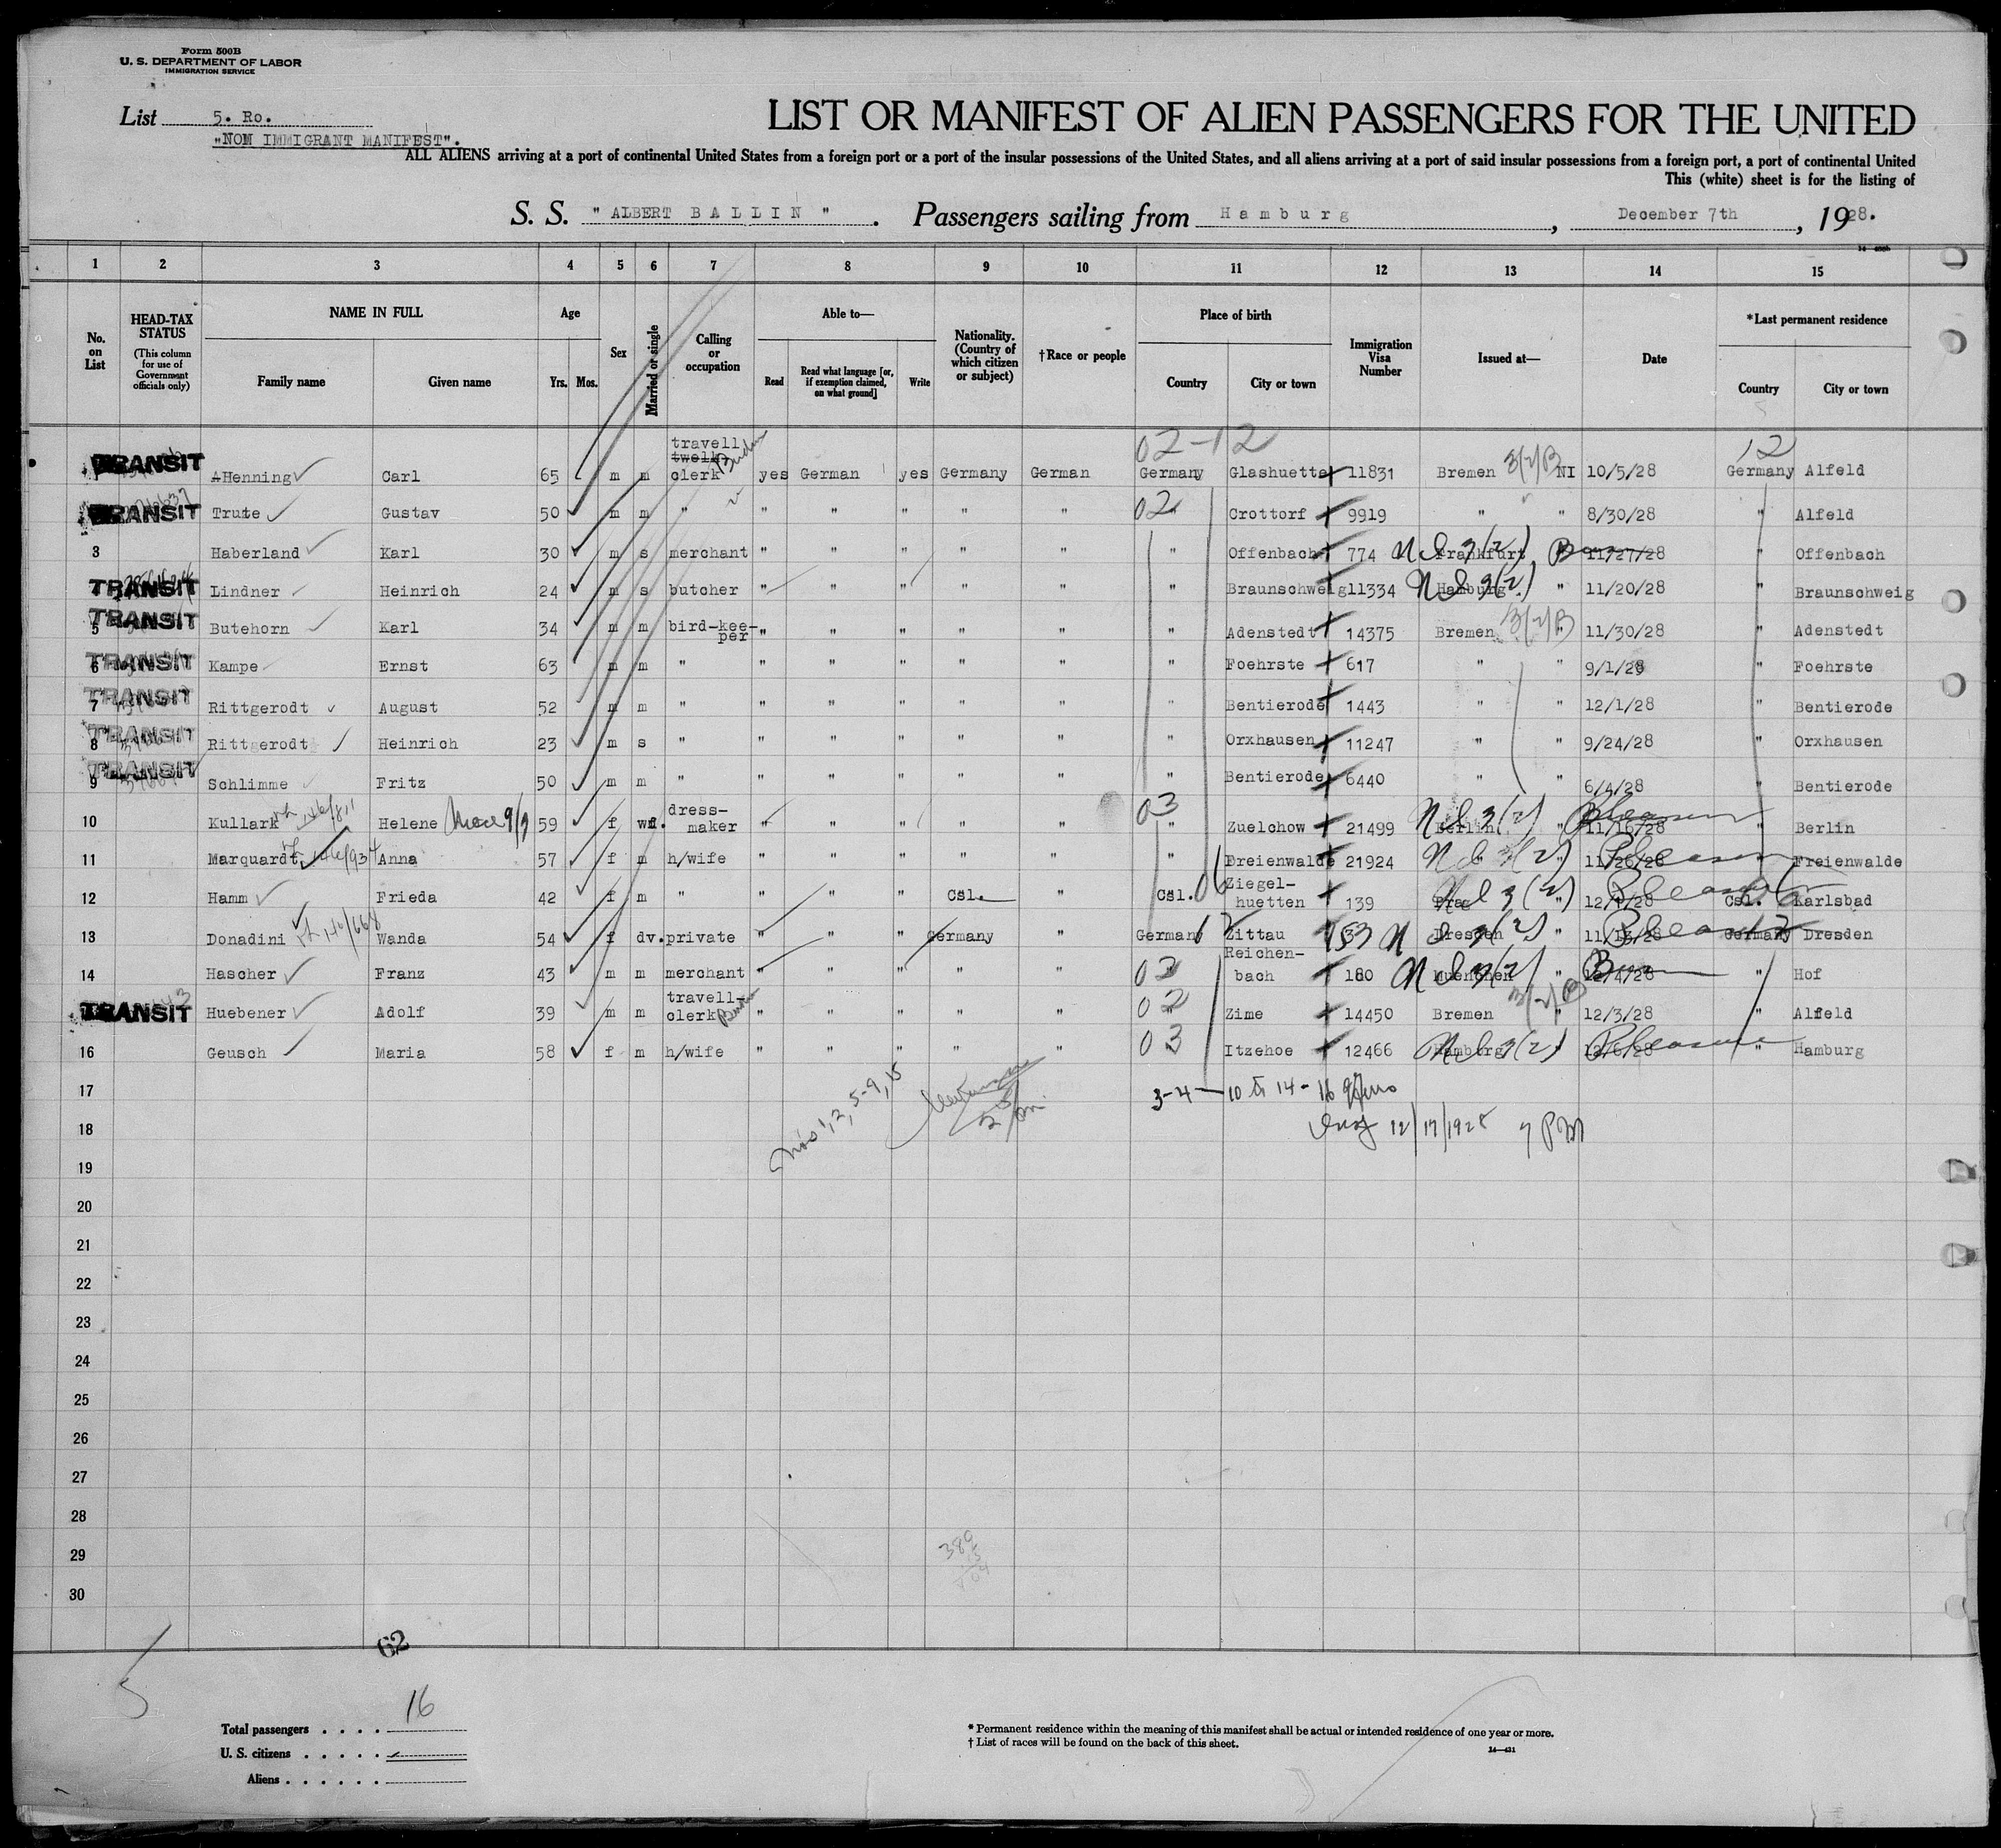 Form 500B
U. S. DEPARTMENT OF LABOR
IMMIGRATION SERVICE
List 5. Ro.
"NOM IMMIGRANT MANIFEST".
LIST OR MANIFEST OF ALIEN PASSENGERS FOR THE UNITED
ALL ALIENS arriving at a port of continental United States from a foreign port or a port of the insular possessions of the United States, and all aliens arriving at a port of said insular possessions from a foreign port, a port of continental United
This (white) sheet is for the listing of
S. S. " ALBERT BALLIN ". Passengers sailing from Hamburg, December 7th, 1928.
1 2 3 4 5 6 7 8 9 10 11 12 13 14 15
No. on List
HEAD-TAX STATUS
(This column for use of Government officials only)
NAME IN FULL
Family name Given name
Age
Yrs. Mos.
Sex
Married or single
Calling or occupation
Able to—
Read
Read what language [or, if exemption claimed, on what ground]
Write
Nationality. (Country of which citizen or subject)
† Race or people
Place of birth
Country City or town
Immigration Visa Number
Issued at—
Date
* Last permanent residence
Country City or town
02-12 12
TRANSIT Henning Carl 65 m m travell. clerk yes German yes Germany German Germany Glashuette 11831 Bremen 3(2)B NI 10/5/28 Germany Alfeld
TRANSIT Trute Gustav 50 m m " " " " " " 02 Crottorf 9919 " " 8/30/28 " Alfeld
3 Haberland Karl 30 m s merchant " " " " " " Offenbach 774 Frankfurt 3(2) 11/27/28 " Offenbach
TRANSIT Lindner Heinrich 24 m s butcher " " " " " " Braunschweig 11334 Hamburg 3(2) " 11/20/28 " Braunschweig
TRANSIT 5 Butehorn Karl 34 m m bird-keeper " " " " " " Adenstedt 14375 Bremen 3(2)B " 11/30/28 " Adenstedt
TRANSIT 6 Kampe Ernst 63 m m " " " " " " " Foehrste 617 " " 9/1/28 " Foehrste
TRANSIT 7 Rittgerodt August 52 m m " " " " " " " Bentierode 1443 " " 12/1/28 " Bentierode
TRANSIT 8 Rittgerodt Heinrich 23 m s " " " " " " " Orxhausen 11247 " " 9/24/28 " Orxhausen
TRANSIT 9 Schlimme Fritz 50 m m " " " " " " " Bentierode 6440 " " 6/4/28 " Bentierode
10 Kullark Helene 59 f wd. dress-maker " " " " " 03 " Zuelchow 21499 Berlin 3(2) " 11/16/28 Pleasure " Berlin
11 Marquardt Anna 57 f m h/wife " " " " " " Freienwalde 21924 3(2) " 11/26/28 Pleasure " Freienwalde
12 Hamm Frieda 42 f m " " " " Csl. " Csl. Ziegel-huetten 139 Prag 3(2) " 12/1/28 Pleasure Csl. Karlsbad
13 Donadini Wanda 54 f dv. private " " " Germany " Germany Zittau Dresden 3(2) " 11/13/28 Pleasure Germany Dresden
14 Hascher Franz 43 m m merchant " " " " " 02 Reichen-bach 180 Muenchen 3(2) " 12/4/28 " Hof
TRANSIT Huebener Adolf 39 m m travell-clerk " " " " " 02 Zime 14450 Bremen 3(2)B 12/3/28 " Alfeld
16 Geusch Maria 58 f m h/wife " " " " " 03 Itzehoe 12466 Hamburg 3(2) " 12/6/28 Pleasure " Hamburg
17 Nos 1, 2, 5-9, 15 3-4—10 to 14-16
18 12/17/1928 7 PM
19
20
21
22
23
24
25
26
27
28
29
30
62
5
Total passengers . . . . 16
U. S. citizens . . . . .
Aliens . . . . . .
* Permanent residence within the meaning of this manifest shall be actual or intended residence of one year or more.
† List of races will be found on the back of this sheet.